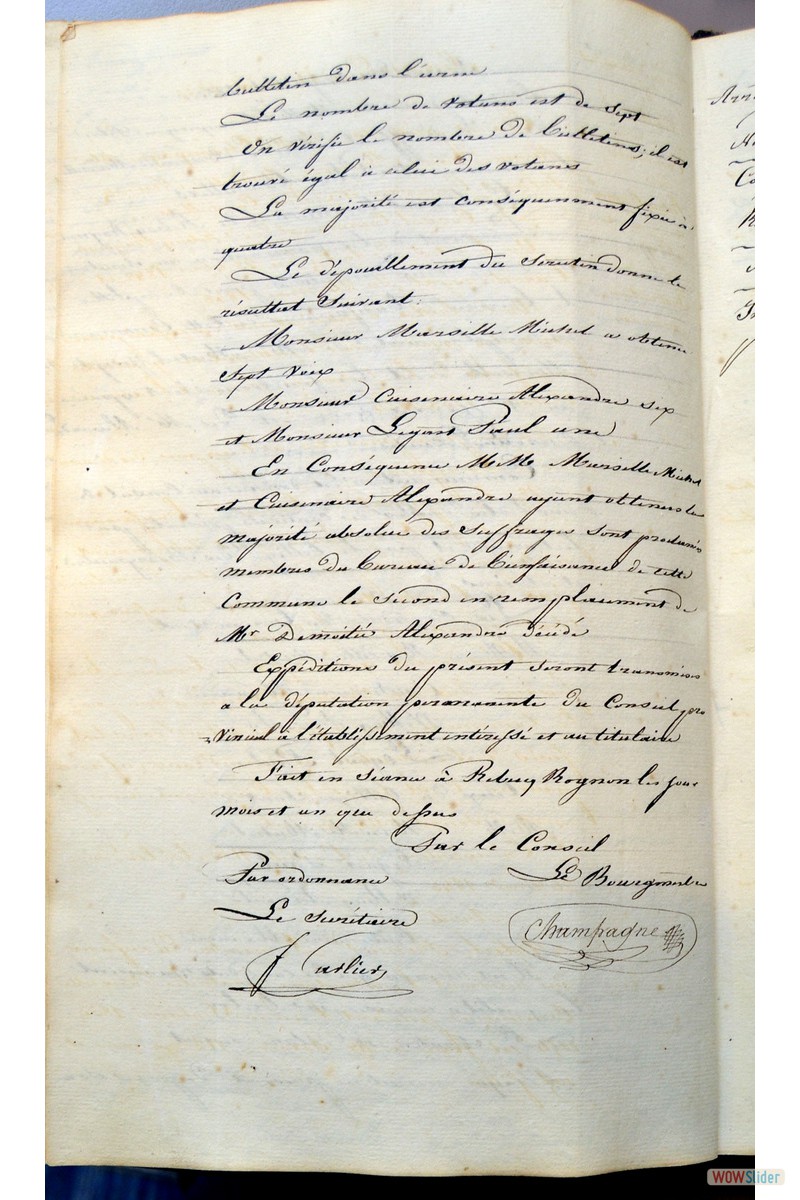 bulletin dans l'urne
Le nombre de votans est de sept
On vérifie le nombre de bulletins; il est
trouvé égal à celui des votans
La majorité est conséquemment fixée à
quatre
Le dépouillement du scrutin donne le
résultat suivant:
Monsieur Marsille Michel a obtenu
sept voix
Monsieur Cuisenaire Alexandre six
et Monsieur Legart Paul une
En Conséquence MM. Marsille Michel
et Cuisenaire Alexandre ayant obtenus la
majorité absolue des suffrages sont proclamés
membres du bureau de bienfaisance de cette
Commune le second en remplacement de
Mr Demoitié Alexandre décédé
Expéditions du présent seront transmises
a la députation permanente du Conseil pro
=vincial à l'établissement intéressé et au titulaire
Fait en séance à Rebecq Rognon les jour
mois et an que dessus
Par le Conseil
Par ordonnance
Le Bourgmestre
Le secrétaire
Champagne
Carlier
WOWSlider